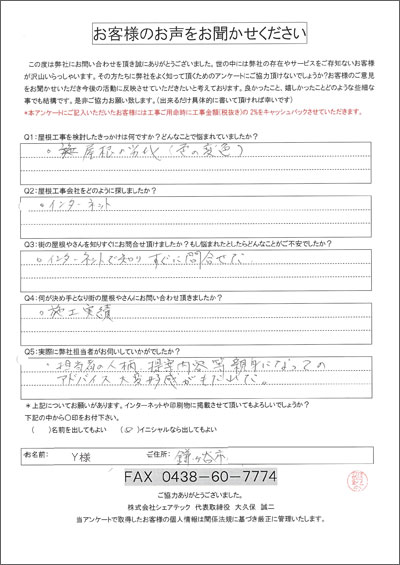 お客様のお声をお聞かせください
この度は弊社にお問い合わせを頂き誠にありがとうございました。世の中には弊社の存在やサービスをご存知ないお客様
が沢山いらっしゃいます。その方たちに弊社をよく知って頂くためのアンケートにご協力頂けないでしょうか?お客様のご意見
をお聞かせいただき今後の活動に反映させていただきたいと考えております。良かったこと、嬉しかったことどのような些細な
事でも結構です。是非ご協力お願い致します。(出来るだけ具体的に書いて頂ければ幸いです)
*本アンケートにご記入いただいたお客様には工事ご用命時に工事金額(税抜き)の 2%をキャッシュバックさせていただきます。
Q1:屋根工事を検討したきっかけは何ですか?どんなことで悩まれていましたか?
屋根の劣化(色の変色)
Q2:屋根工事会社をどのように探しましたか?
・インターネット
Q3:街の屋根やさんを知りすぐにお問合せ頂けましたか?もし悩まれたとしたらどんなことがご不安でしたか?
・インターネットで知りすぐに問合せた
Q4:何が決め手となり街の屋根やさんにお問い合わせ頂きましたか?
・施工実績
Q5:実際に弊社担当者がお伺いしていかがでしたか?
・担当者の人柄、提案内容等親身になっての
アドバイス大変好感がもたれた。
* 上記についてお願いがあります。インターネットや印刷物に掲載させて頂いてもよろしいでしょうか?
下記の中から○印をお付下さい。
( )名前を出してもよい (○)イニシャルなら出してもよい
お名前: Y様 ご住所: 鎌ヶ谷市
FAX 0438-60-7774
ご協力ありがとうございました。
株式会社シェアテック 代表取締役 大久保 誠二
当アンケートで取得したお客様の個人情報は関係法規に基づき厳正に管理いたします。